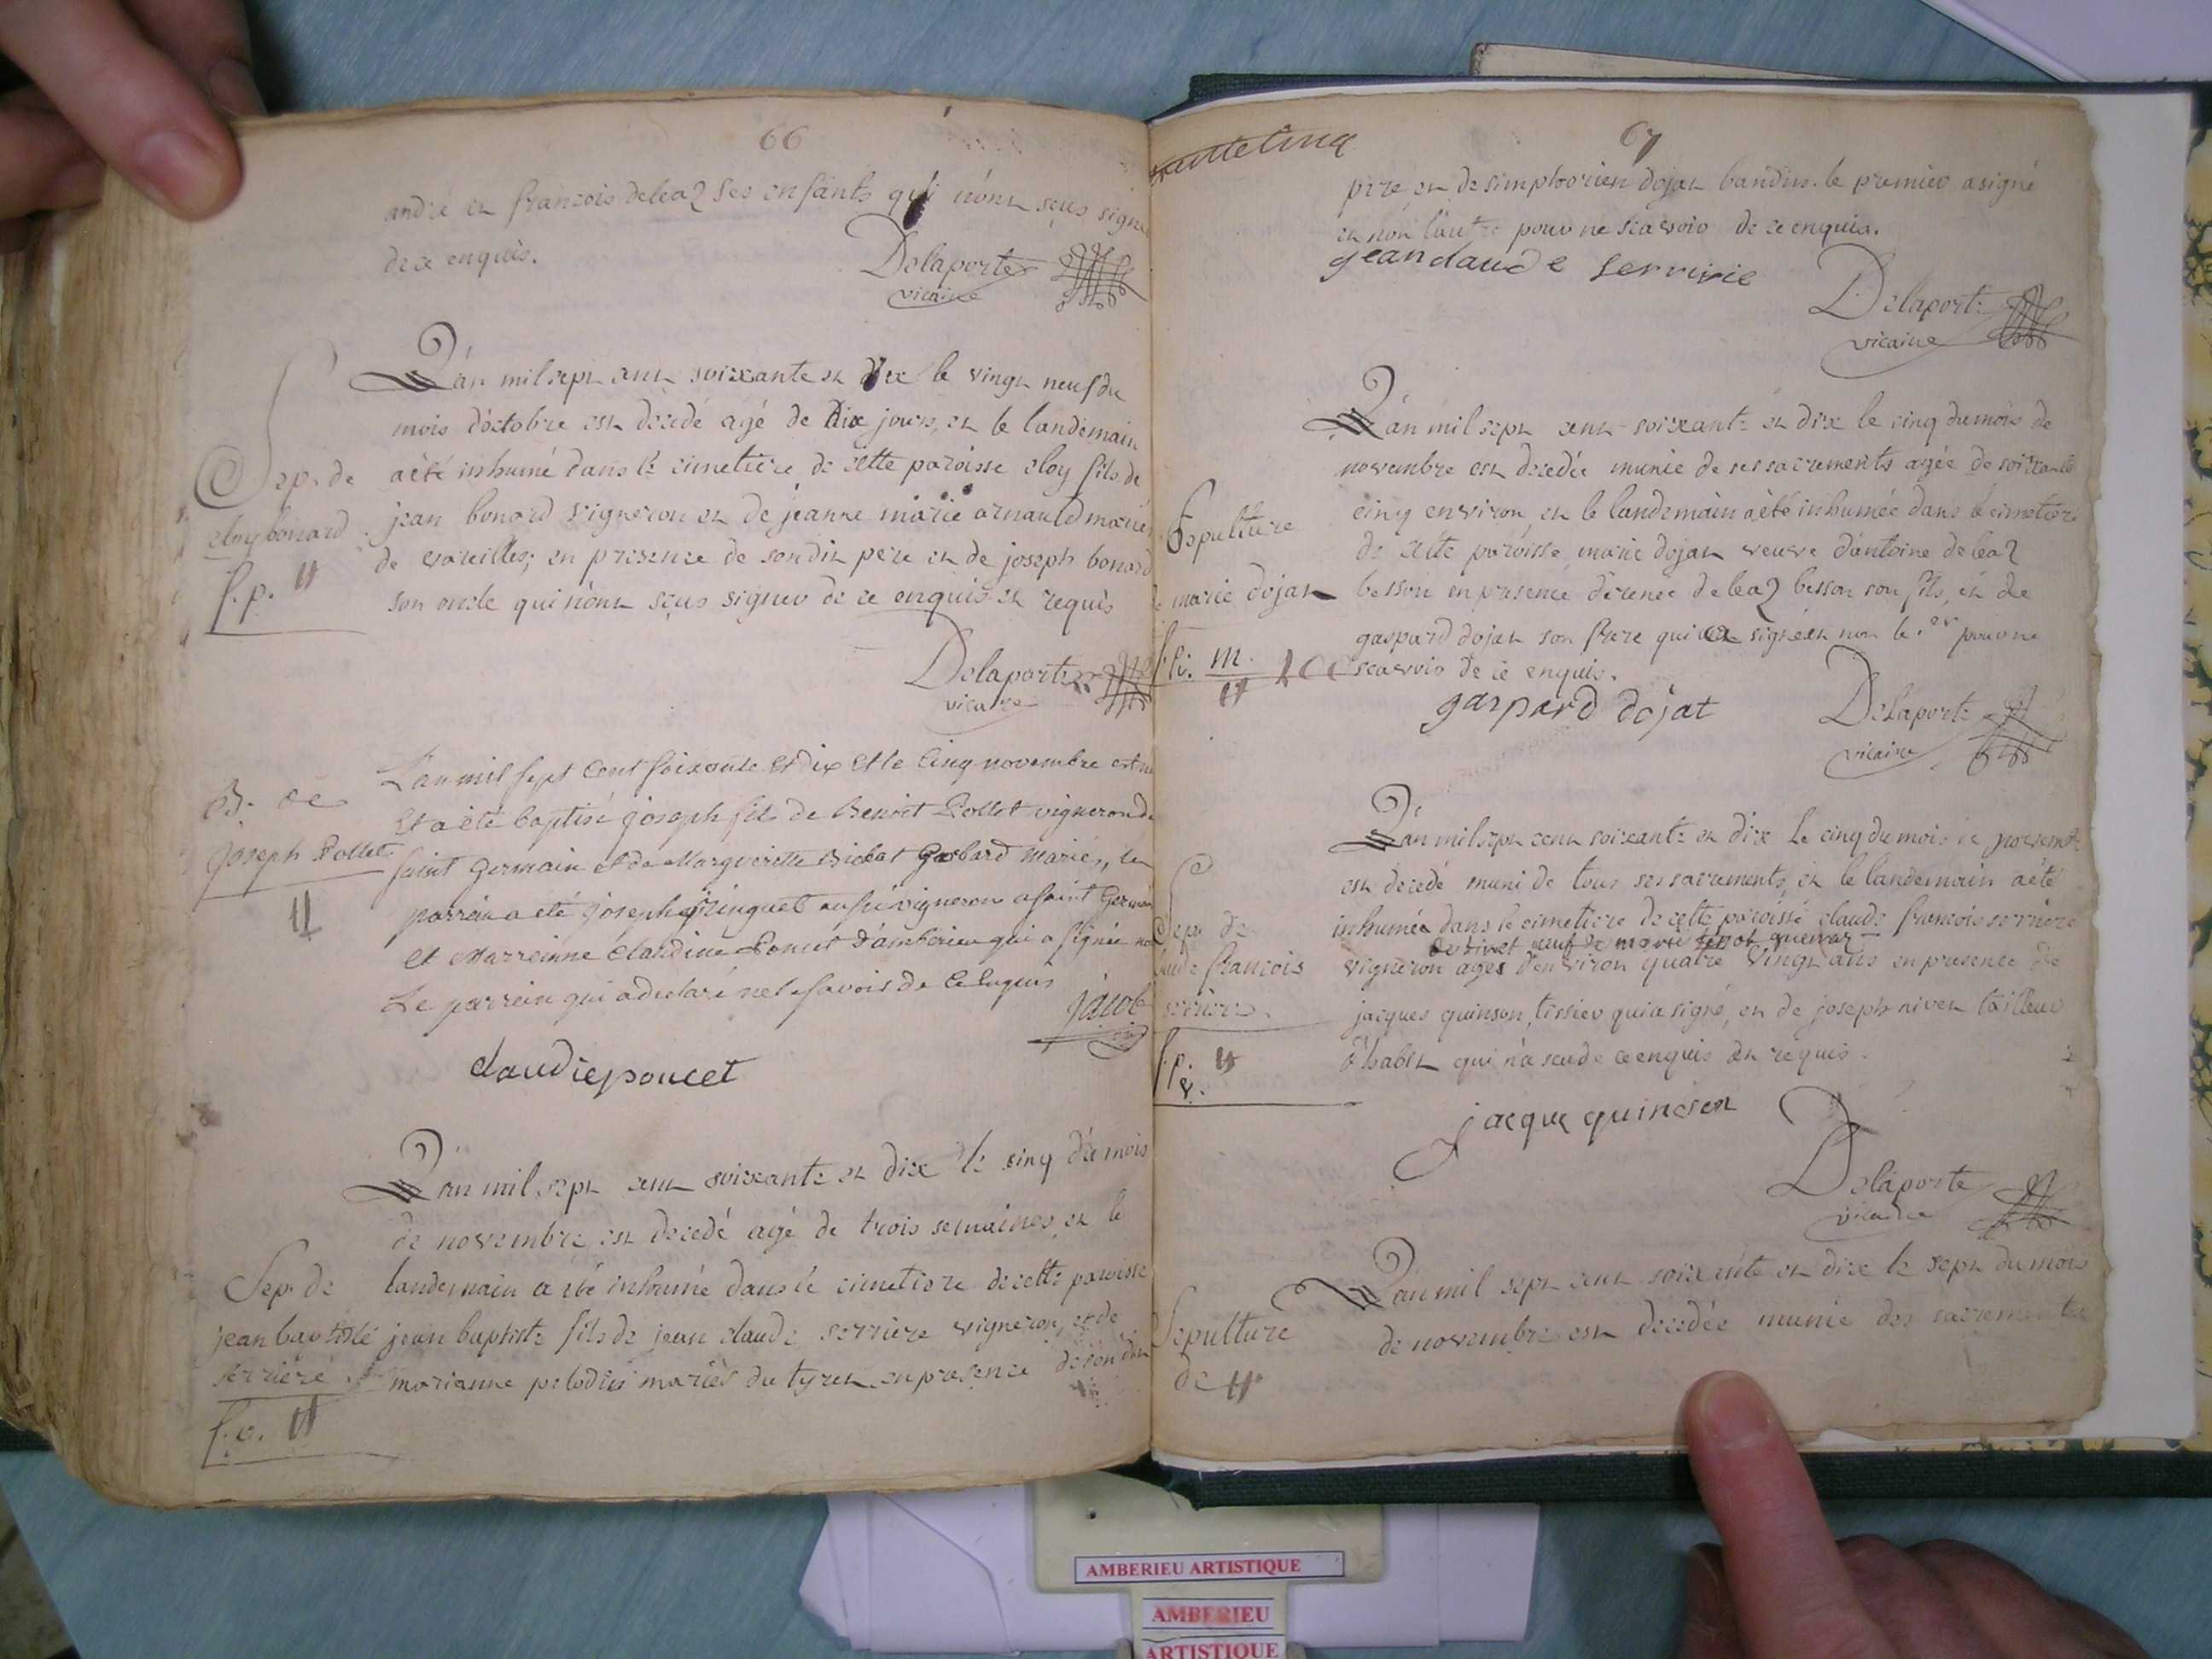 66
andré et françois deleaz ses enfants qui n'ont sçus signer
de ce enquis.
Delaporte
vicaire
L'an mil sept cent soixante et dix le vingt neuf du
mois d'octobre est décédé agé de dix jours, et le landemain
Sep. de
a été inhumé dans le cimetiere de cette paroisse eloy fils de
eloy bonard
jean bonard vigneron et de jeanne marie arnauld mariés
f. p.
de vareilles; en presence de son dit pere et de joseph bonard
son oncle qui n'ont sçus signer de ce enquis et requis
Delaporte
vicaire
L'an mil sept cent soixante et dix et le cinq novembre est né
B. de
et a été baptisé joseph fils de Benoit Pollet vigneron de
joseph Pollet
saint Germain et de Margueritte mariés, le
parrein a été joseph aussi vigneron a saint Germain
et Marreinne Claudine Poncet d'amberieu qui a signée non
Le parrein qui a declaré ne le savoir de ce enquis
jacob
claudie poncet
L'an mil sept cent soixante et dix le cinq du mois
de novembre est decedé agé de trois semaines, et le
Sep. de
landemain a été inhumé dans le cimetiere de cette paroisse
jean baptiste
jean baptiste fils de jean claude serriere vigneron, et de
serriere
marianne mariés du tyret en presence de son dit
f. p.
67
pere et de simphorien dojat bandin. le premier a signé
et non l'autre pour ne scavoir de ce enquis.
jean claude
Delaporte
vicaire
L'an mil sept cent soixante et dix le cinq du mois de
novembre est decedée munie de ses sacrements agée de soixante
Sepulture
cinq environ, et le landemain a été inhumée dans le cimetiere
de cette paroisse marie dojat veuve d'antoine deleaz
de marie dojat
besson en presence d'renée deleaz besson son fils, et de
gaspard dojat son frere qui a signé et non le 1.er pour ne
scavoir de ce enquis.
gaspard dojat
Delaporte
vicaire
L'an mil sept cent soixante et dix Le cinq du mois de novembre
est decedé muni de tous ses sacrements, et le landemain a été
Sep. de
inhumée dans le cimetiere de cette paroisse claude francois serriere
claude francois
vigneron agés d'environ quatre vingt ans en presence de
serriere
jacques quinson, tissier qui a signé, et de joseph nivet tailleur
d'habit qui n'a scu de ce enquis et requis.
f. p.
v.
jacque quinson
Delaporte
vicaire
L'an mil sept cent soixante et dix le sept du mois
Sepulture
de novembre est decedée munie des sacrements
de
AMBERIEU ARTISTIQUE
AMBERIEU
ARTISTIQUE